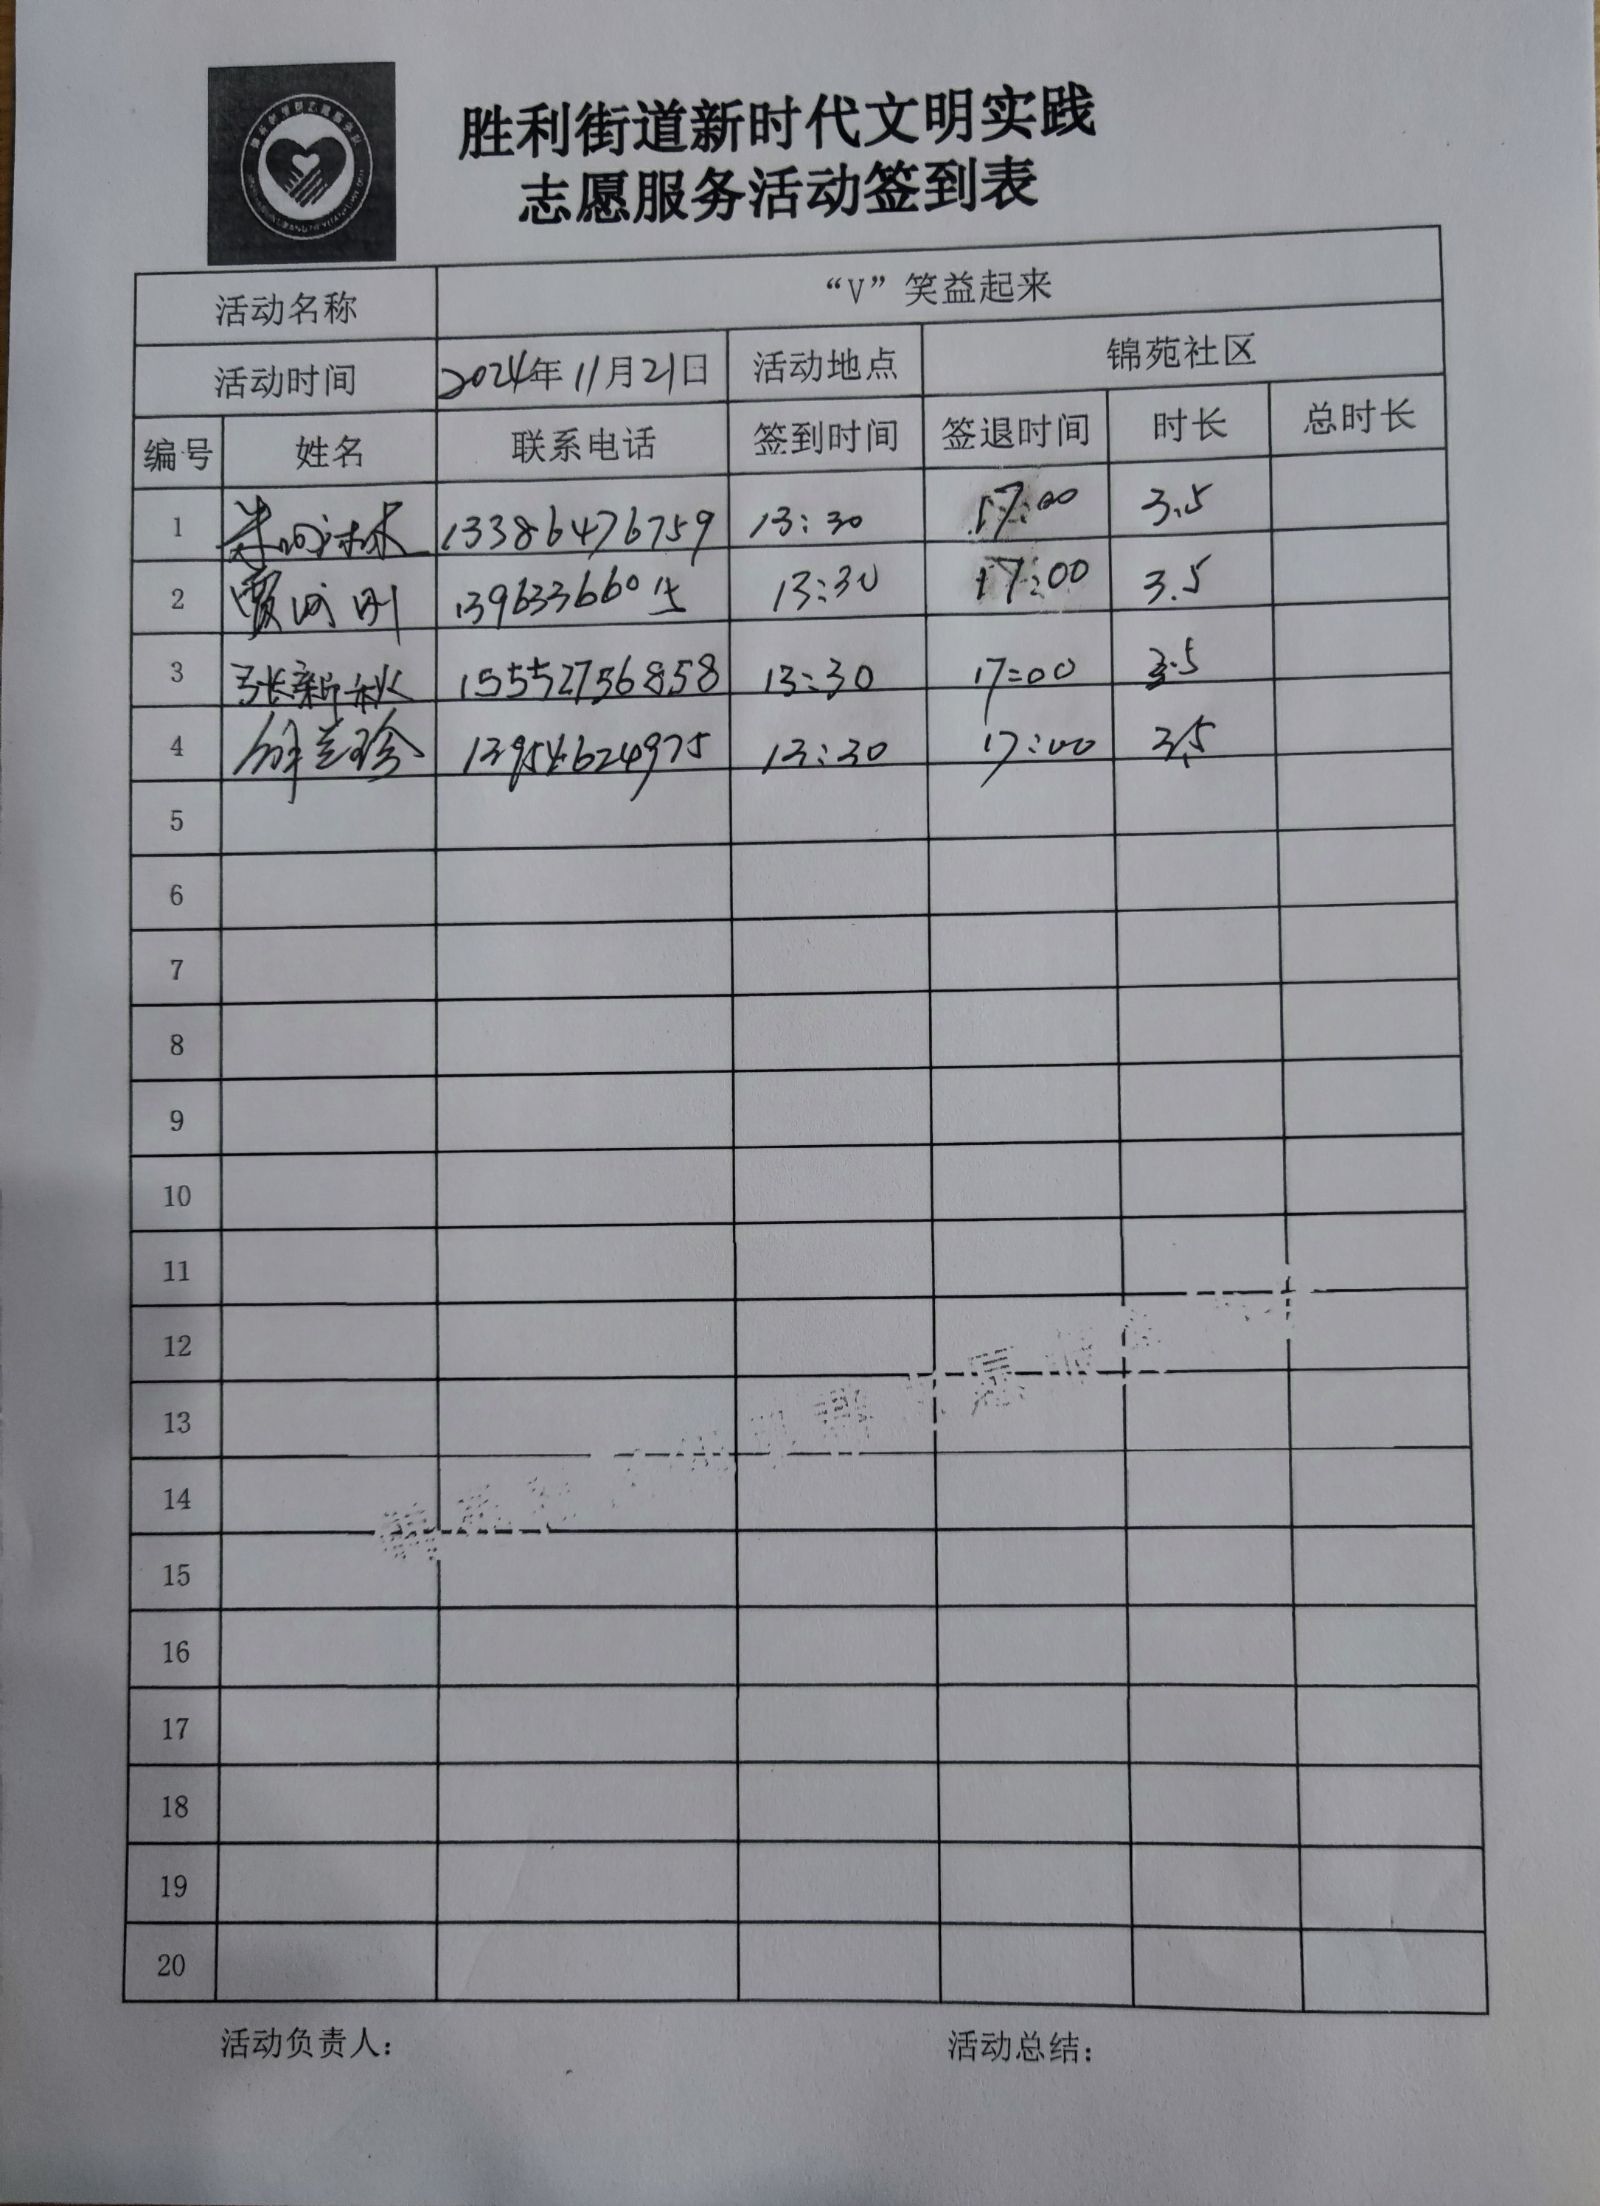 胜利街道新时代文明实践
志愿服务活动签到表
活动名称 “V”笑益起来
活动时间 2024年11月21日 活动地点 锦苑社区
编号 姓名 联系电话 签到时间 签退时间 时长 总时长
1 13386476759 13:30 17:00 3.5
2 13:30 17:00 3.5
3 张新秋 15552756858 13:30 17:00 3.5
4 13954624975 13:30 17:00 3.5
5
6
7
8
9
10
11
12
13
14
15
16
17
18
19
20
活动负责人: 活动总结: